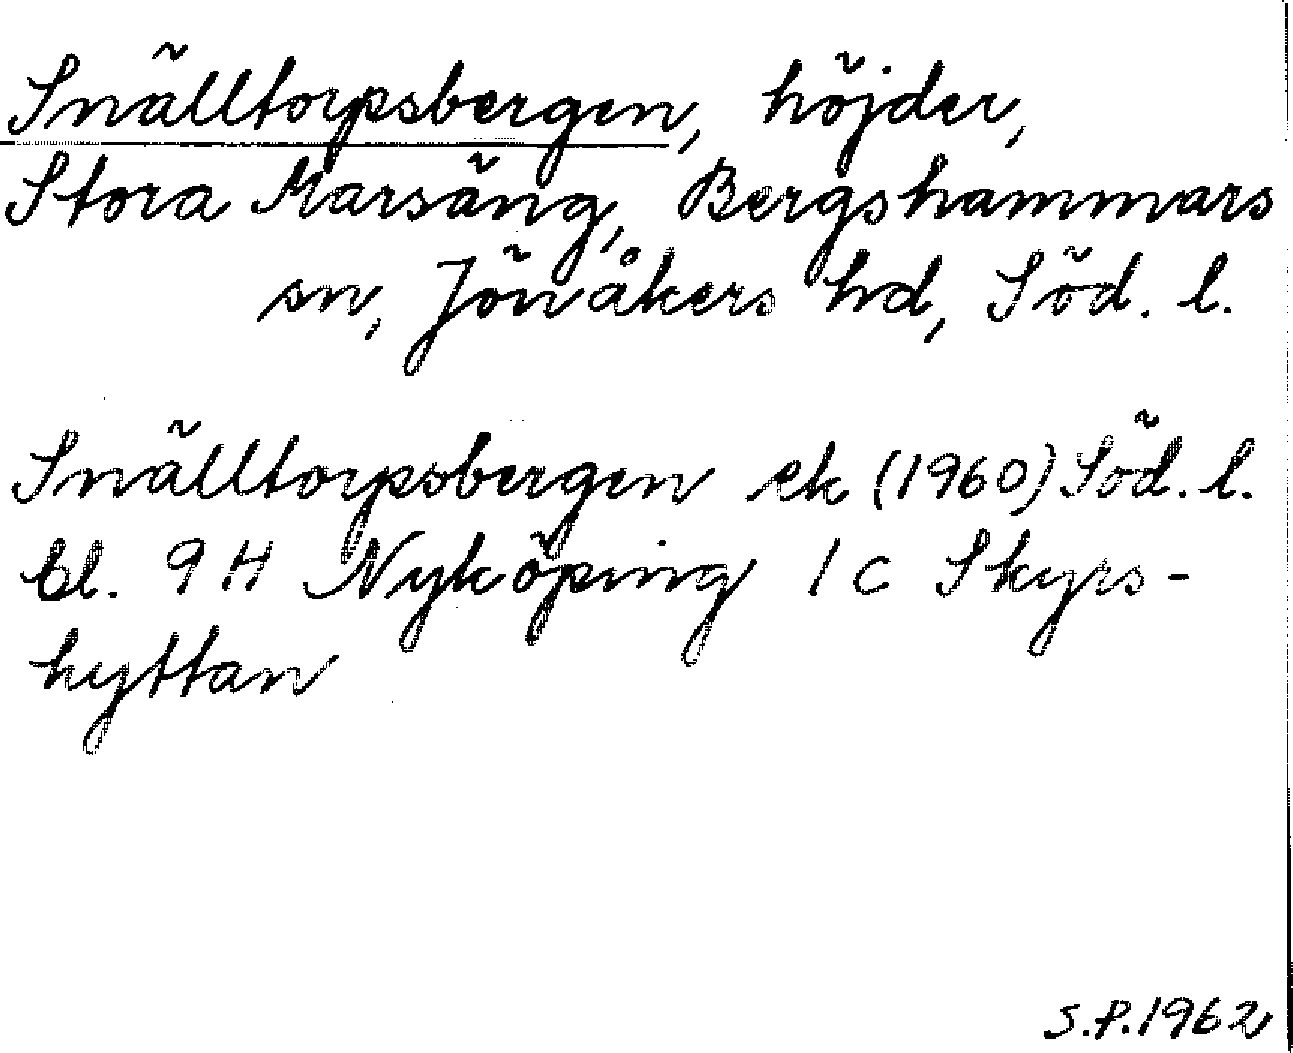 Snälltorpsbergen, höjder,
Stora Marsäng, Bergshammars
sn, Jönåkers hd, Söd. l.
Snälltorpsbergen ek (1960) Söd. l.
bl. 9 H Nyköping 1 c Skyrs-
hyttan
S.P. 1962